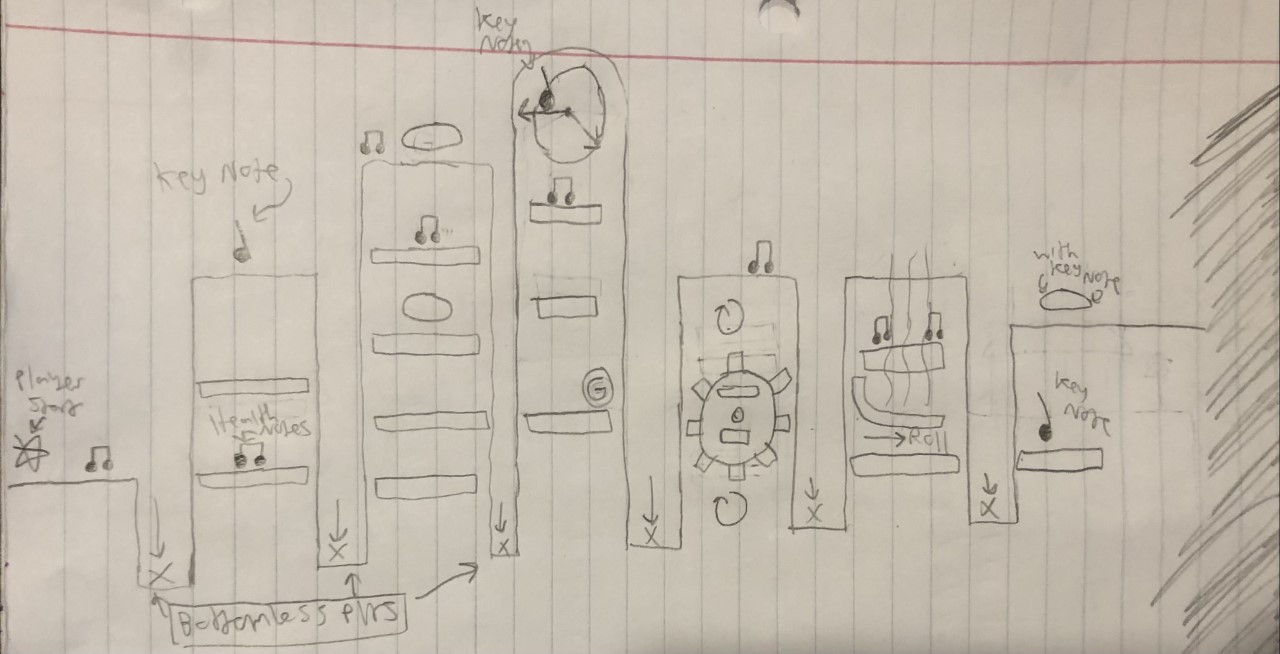 Key
Note
Key Note
Player
Start
Item with
Notes
G
Roll
with
Key Note
Key
Note
X
X
X
X
X
X
Bottomless pits